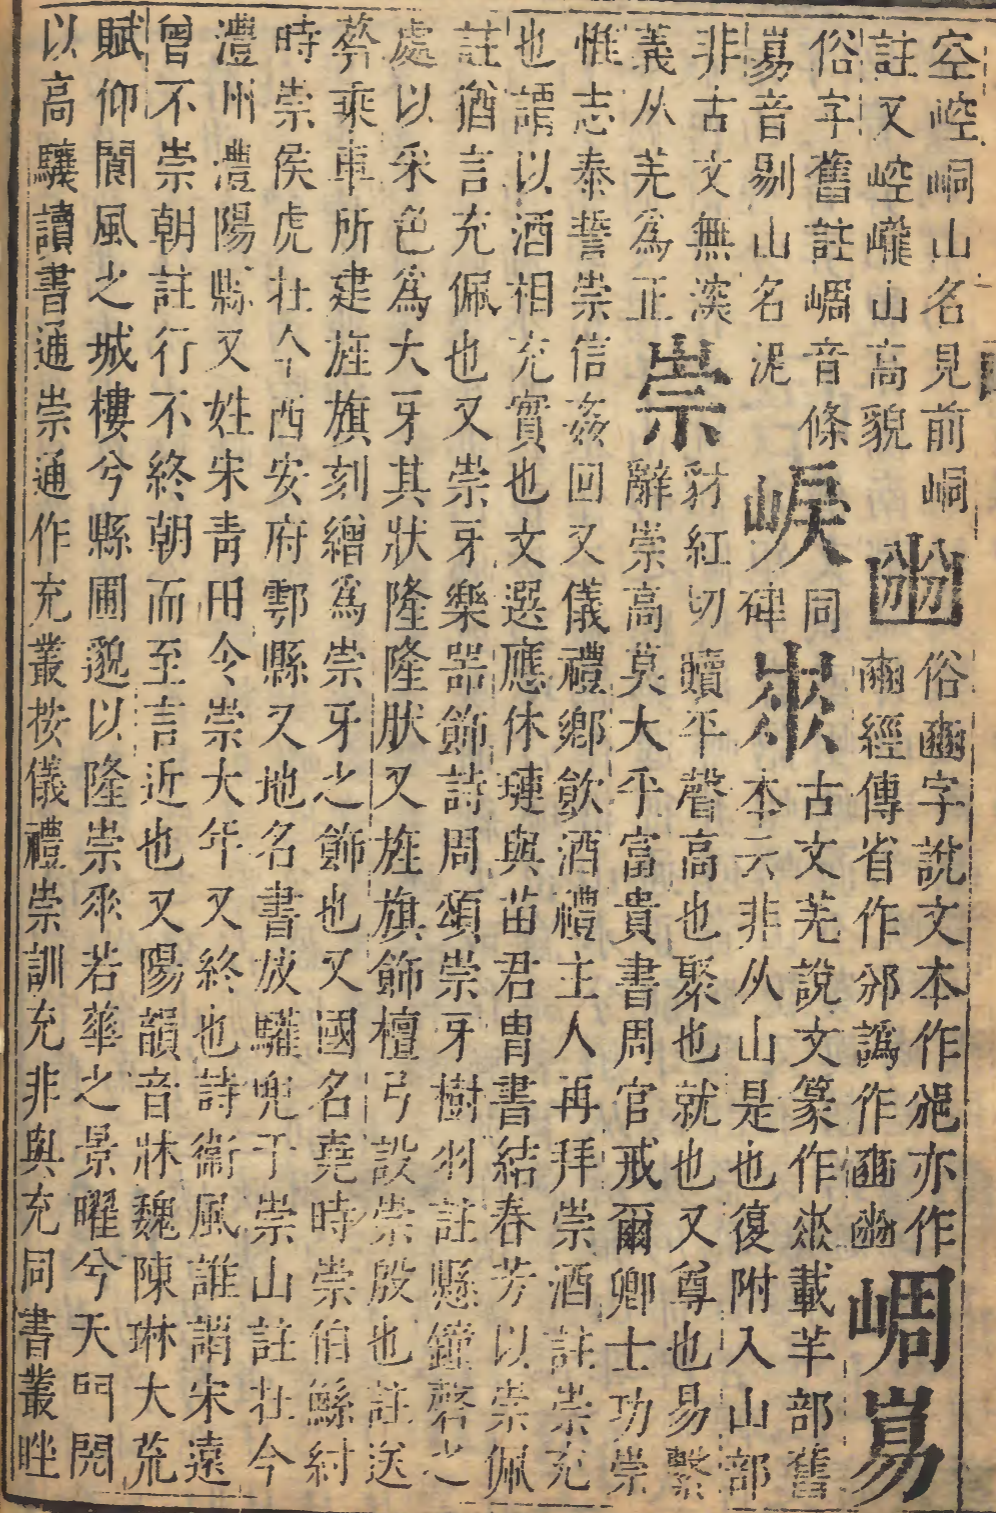 空崆峒山名見前峒
註又崆巄山高貌
俗豳字說文本作亦作
豳經傳省作邠譌作豳
㟘崵
俗字舊註㟘音條
崵音剔山名泥
同
碑
古文羌說文篆作載羊部舊
本云非从山是也復附入山部
非古文無溪
義从羌爲正
崇
豺紅切贖平聲高也聚也就也又尊也易繫
辭崇高莫大乎富貴書周官戒爾卿士功崇
惟志泰誓崇信姦回又儀禮鄉飲酒禮主人再拜崇酒註崇充
也謂以酒相充實也文選應休璉與苗君冑書結春芳以崇佩
註猶言充佩也又崇牙樂器飾詩周頌崇牙樹羽註懸鐘磬之
處以采色爲大牙其狀隆隆肰又旌旗飾檀弓設崇殷也註送
葬乘車所建旌旗刻繒爲崇牙之飾也又國名堯時崇伯鯀紂
時崇侯虎壯今西安府鄠縣又地名書放驩兜于崇山註壯今
澧州澧陽縣又姓宋靑田令崇大年又終也詩衞風誰謂宋遠
曾不崇朝註行不終朝而至言近也又陽韻音牀魏陳琳大荒
賦仰閬風之城樓兮縣圃邈以隆崇乖若華之景曜兮天門閌
以高驤讀書通崇通作充叢按儀禮崇訓充非與充同書叢脞